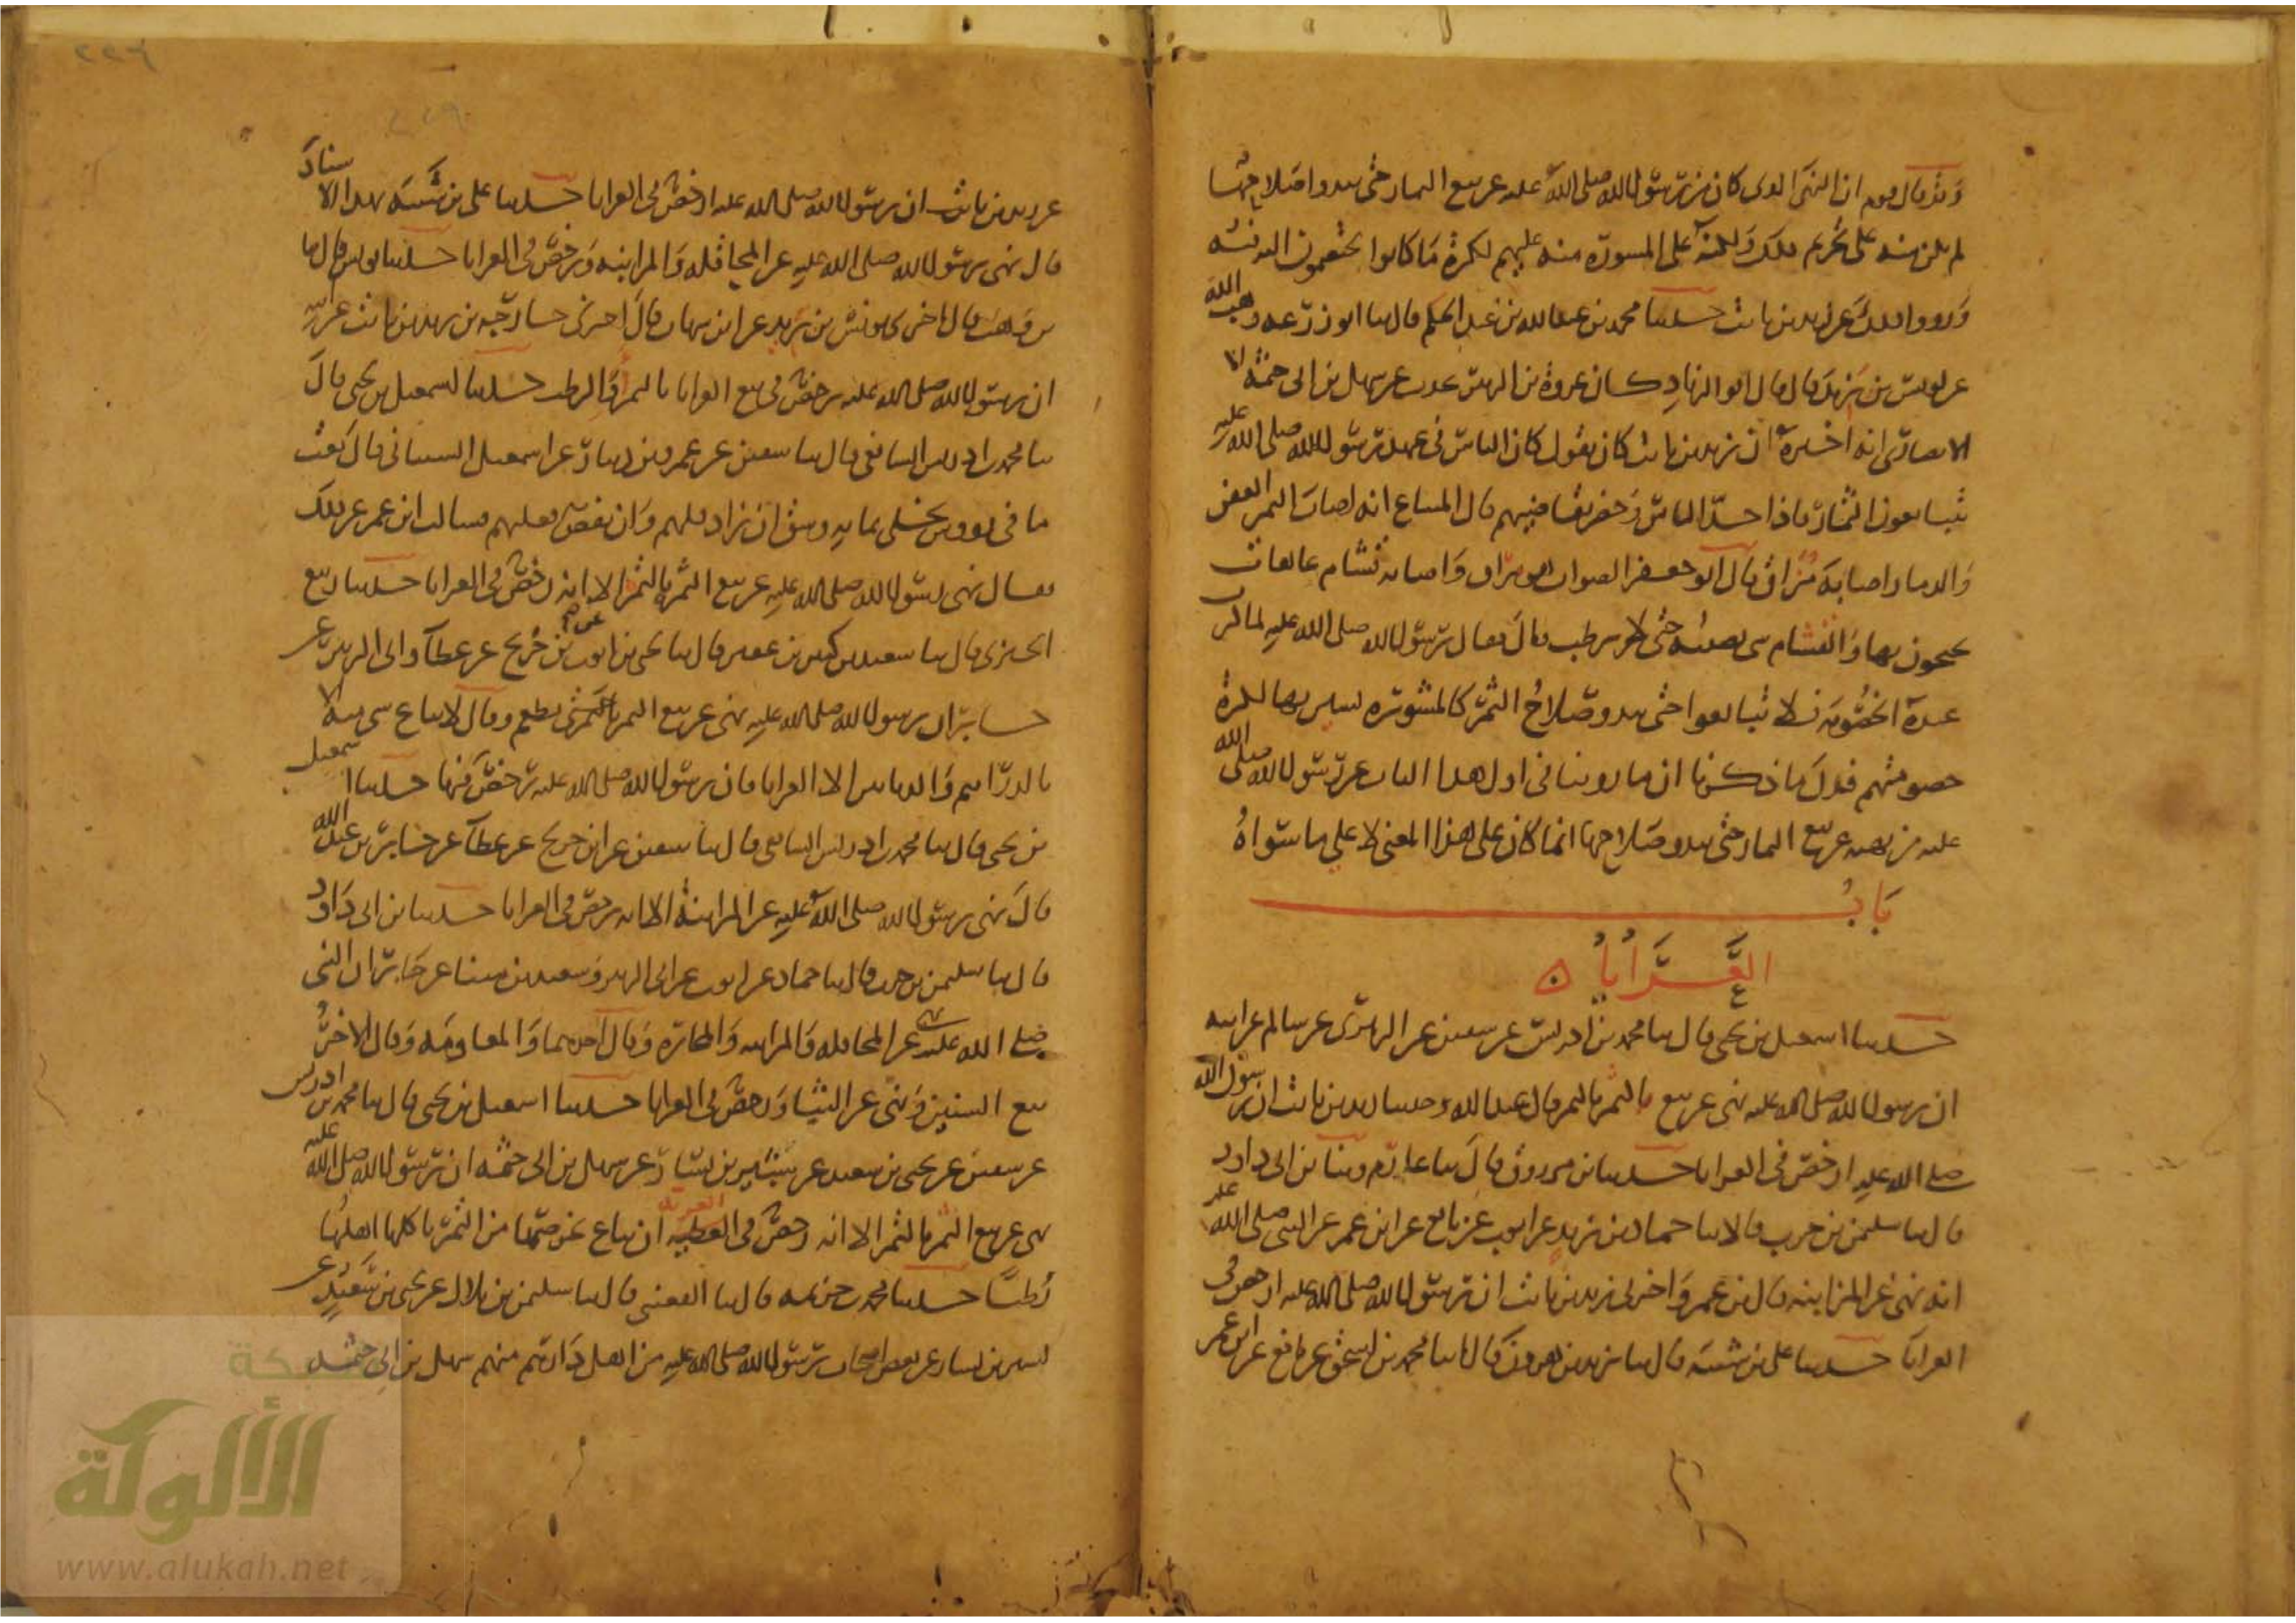 وقد قال قوم ان النهى الذى كان من رسول الله صلى الله عليه عن بيع الثمار حتى يبدو اصلاحها
لم يكن منه على تحريم ذلك ولكنه على المسورة منه عليهم لكثرة ما كانوا يختصمون اليه فيه
ورووا ذلك عن زيد بن ثابت حدثنا محمد بن عبد الله بن عبد الحكم قال ثنا ابو زرعه وهب الله
عن يونس بن يزيد قال قال ابو الزناد كان عروة بن الزبير يحدث عن سهل بن ابى حثمة
الانصارى انه اخبره ان زيد بن ثابت كان يقول كان الناس فى عهد رسول الله صلى الله عليه
يتبايعون الثمار فاذا جد الناس وحضر تقاضيهم قال المبتاع انه اصاب الثمر العفن
والدمار اصابه مراق قال ابو جعفر الصواب هو مراق واصابه قشام عاهات
يحتجون بها والقشام شى يصيبه حتى لا يرطب قال فقال رسول الله صلى الله عليه لما كثرت
عنده الخصومة فلا تتبايعوا حتى يبدو صلاح الثمر كالمشورة يشير بها لكثرة
خصومتهم فدل ما ذكرنا ان ما روينا فى اول هذا الباب عن رسول الله صلى الله
عليه من نهيه عن بيع الثمار حتى يبدو صلاحها انما كان على هذا المعنى لا على ما سواه
باب
العرايا
حدثنا اسمعيل بن يحيى قال ثنا محمد بن ادريس عن سفين عن الزهرى عن سالم عن ابيه
ان رسول الله صلى الله عليه نهى عن بيع الثمر بالتمر قال عبد الله وحدثنا زيد بن ثابت ان رسول الله
صلى الله عليه ارخص فى العرايا حدثنا بن مرزوق قال ثنا عارم وثنا بن ابى داود
قال ثنا سليمن بن حرب قالا ثنا حماد بن زيد عن ايوب عن نافع عن ابن عمر عن النبى صلى الله عليه
انه نهى عن المزابنه قال بن عمر واخبرنى زيد بن ثابت ان رسول الله صلى الله عليه ارخص فى
العرايا حدثنا على بن شيبه قال ثنا يزيد بن هرون قال انا محمد بن اسحق عن نافع عن ابن عمر
عن زيد بن ثابت ان رسول الله صلى الله عليه ارخص فى العرايا حدثنا على بن شيبه بهذا الاسناد
قال نهى رسول الله صلى الله عليه عن المحاقله والمزابنه ورخص فى العرايا حدثنا يونس قال انا
بن وهب قال اخبرنى يونس بن يزيد عن ابن شهاب قال اخبرنى خارجه بن زيد بن ثابت عن ابيه
ان رسول الله صلى الله عليه رخص فى بيع العرايا بالتمر والرطب حدثنا اسمعيل بن يحيى قال
ثنا محمد بن ادريس الشافعى قال ثنا سفين عن عمرو بن دينار عن اسمعيل الشيبانى قال بعت
ما فى رووس نخلى بمايه وسق ان زاد فلهم وان نقص فعليهم فسالت ابن عمر عن ذلك
فقال نهى رسول الله صلى الله عليه عن بيع الثمر بالتمر الا انه رخص فى العرايا حدثنا ربيع
الجيزى قال ثنا سعيد بن كثير بن عفير قال ثنا يحيى بن ايوب عن بن جريج عن عطا وابى الزبير عن
جابر ان رسول الله صلى الله عليه نهى عن بيع الثمر حتى يطعم وقال لا يباع شى منه الا
بالدراهم والدنانير الا العرايا فان رسول الله صلى الله عليه رخص فيها حدثنا اسمعيل
بن يحيى قال ثنا محمد بن ادريس الشافعى قال ثنا سفين عن ابن جريج عن عطا عن جابر بن عبد الله
قال نهى رسول الله صلى الله عليه عن المزابنة الا انه رخص فى العرايا حدثنا بن ابى داود
قال ثنا سليمن بن حرب قال ثنا حماد عن ايوب عن ابى الزبير وسعيد بن مينا عن جابر ان النبى
صلى الله عليه نهى عن المحاقله والمزابنه والمخابره وقال احدهما والمعاومه وقال الاخر
بيع السنين ونهى عن الثنيا ورخص فى العرايا حدثنا اسمعيل بن يحيى قال ثنا محمد بن ادريس
عن سفين عن يحيى بن سعيد عن بشير بن يسار عن سهل بن ابى حثمه ان رسول الله صلى الله عليه
نهى عن بيع الثمر بالتمر الا انه رخص فى العطيه العريه ان تباع بخرصها من التمر ياكلها اهلها
رطبا حدثنا محمد بن خزيمه قال ثنا القعنبى قال ثنا سليمن بن بلال عن يحيى بن سعيد عن
بشير بن يسار عن بعض اصحاب رسول الله صلى الله عليه من اهل دارهم منهم سهل بن ابى حثمه
شبكة
الألوكة
www.alukah.net